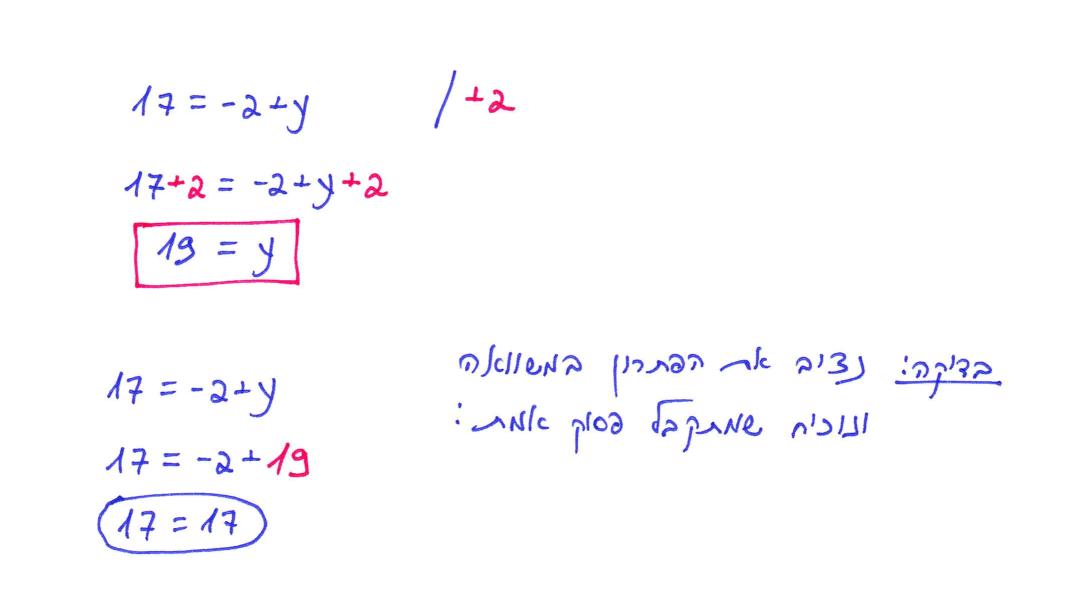 17 = -2+y /+2
17+2 = -2+y+2
19 = y
בדיקה: נציב את הפתרון במשוואה
ונוכיח שמתקבל פסוק אמת:
17 = -2+y
17 = -2+19
17 = 17